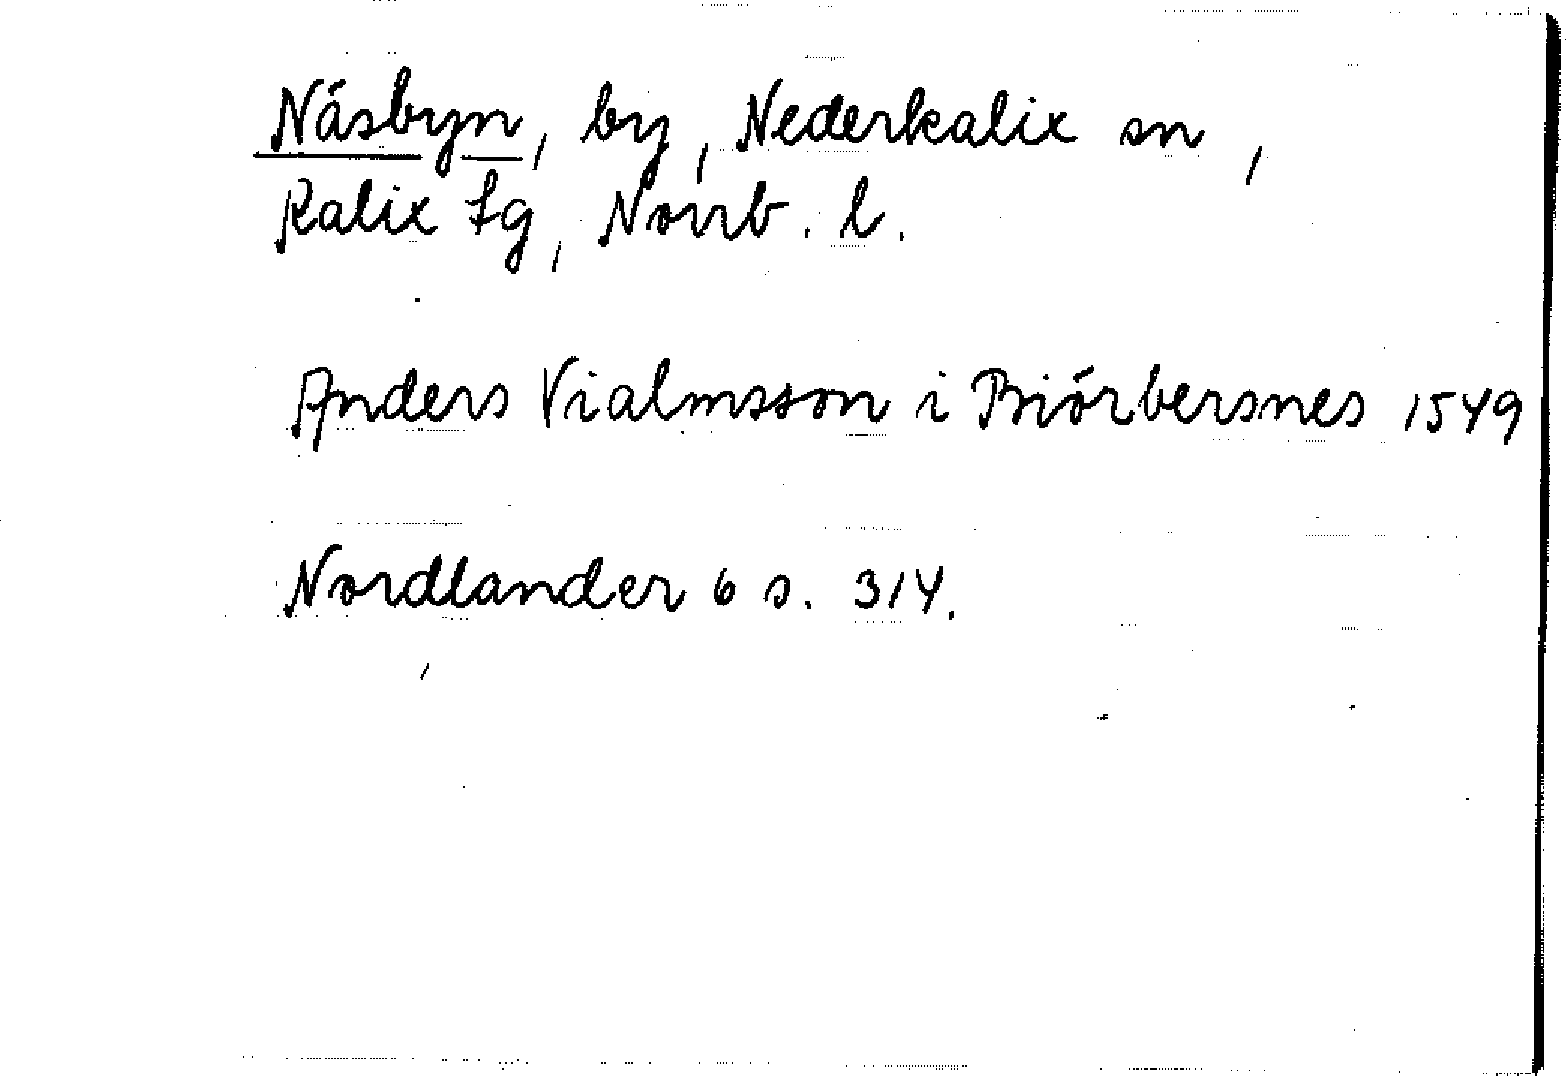 Näsbyn, by, Nederkalix sn,
Kalix tg, Norrb. l.
Anders Vialmsson i Biörbersnes 1549
Nordlander 6 s. 314.